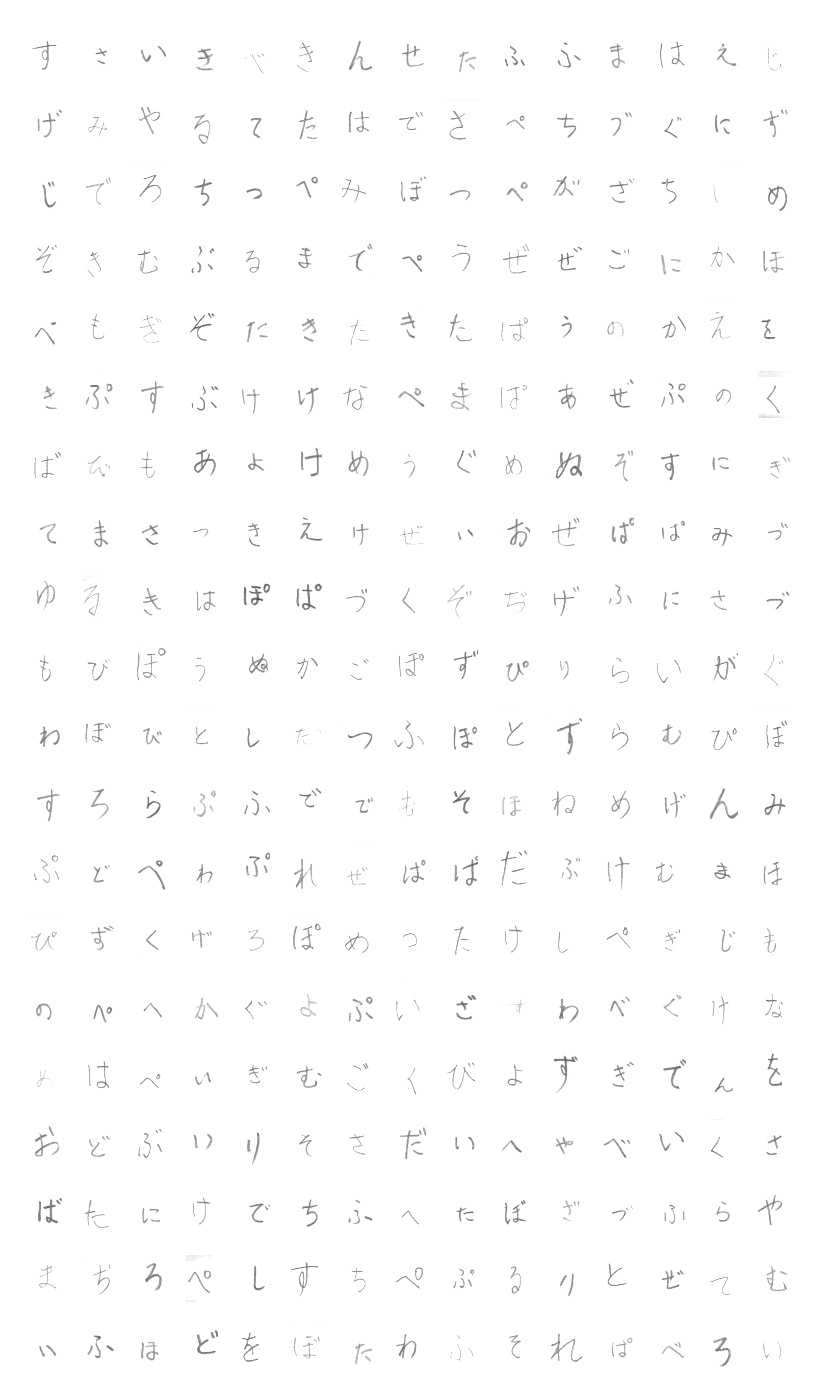 すさいきべきんせたふふまはえじ
げみやるてたはでさぺちづぐにず
じでろちっぺみぼっぺがざちしめ
ぞきむぶるまでぺうぜぜごにかほ
べもぎぞたきたきたぱうのかえを
きぷすぶけけなぺまぱあぜぷのく
ばむもあよけめうぐめぬぞすにぎ
てまさっきえけぜいおぜぱぱみづ
ゆるきはぽぱづくぞぢげふにさづ
もびぽうぬかごぽずぴりらいがぐ
わぼびとしだつふぽとずらむぴぼ
すろらぷふででもそほねめげんみ
ぷどぺわぷれぜぱばだぶけむまほ
ぴずくげろぽめつたけしぺぎじも
のぺへかぐよぷいざすわべぐけな
めはぺいぎむごくびよずぎでんを
おどぶいりそさだいへやべいくさ
ばたにけでちふへたぼざづふらや
まぢろぺしすちぺぷるりとぜてむ
いふほどをぼたわふそれぱべろい